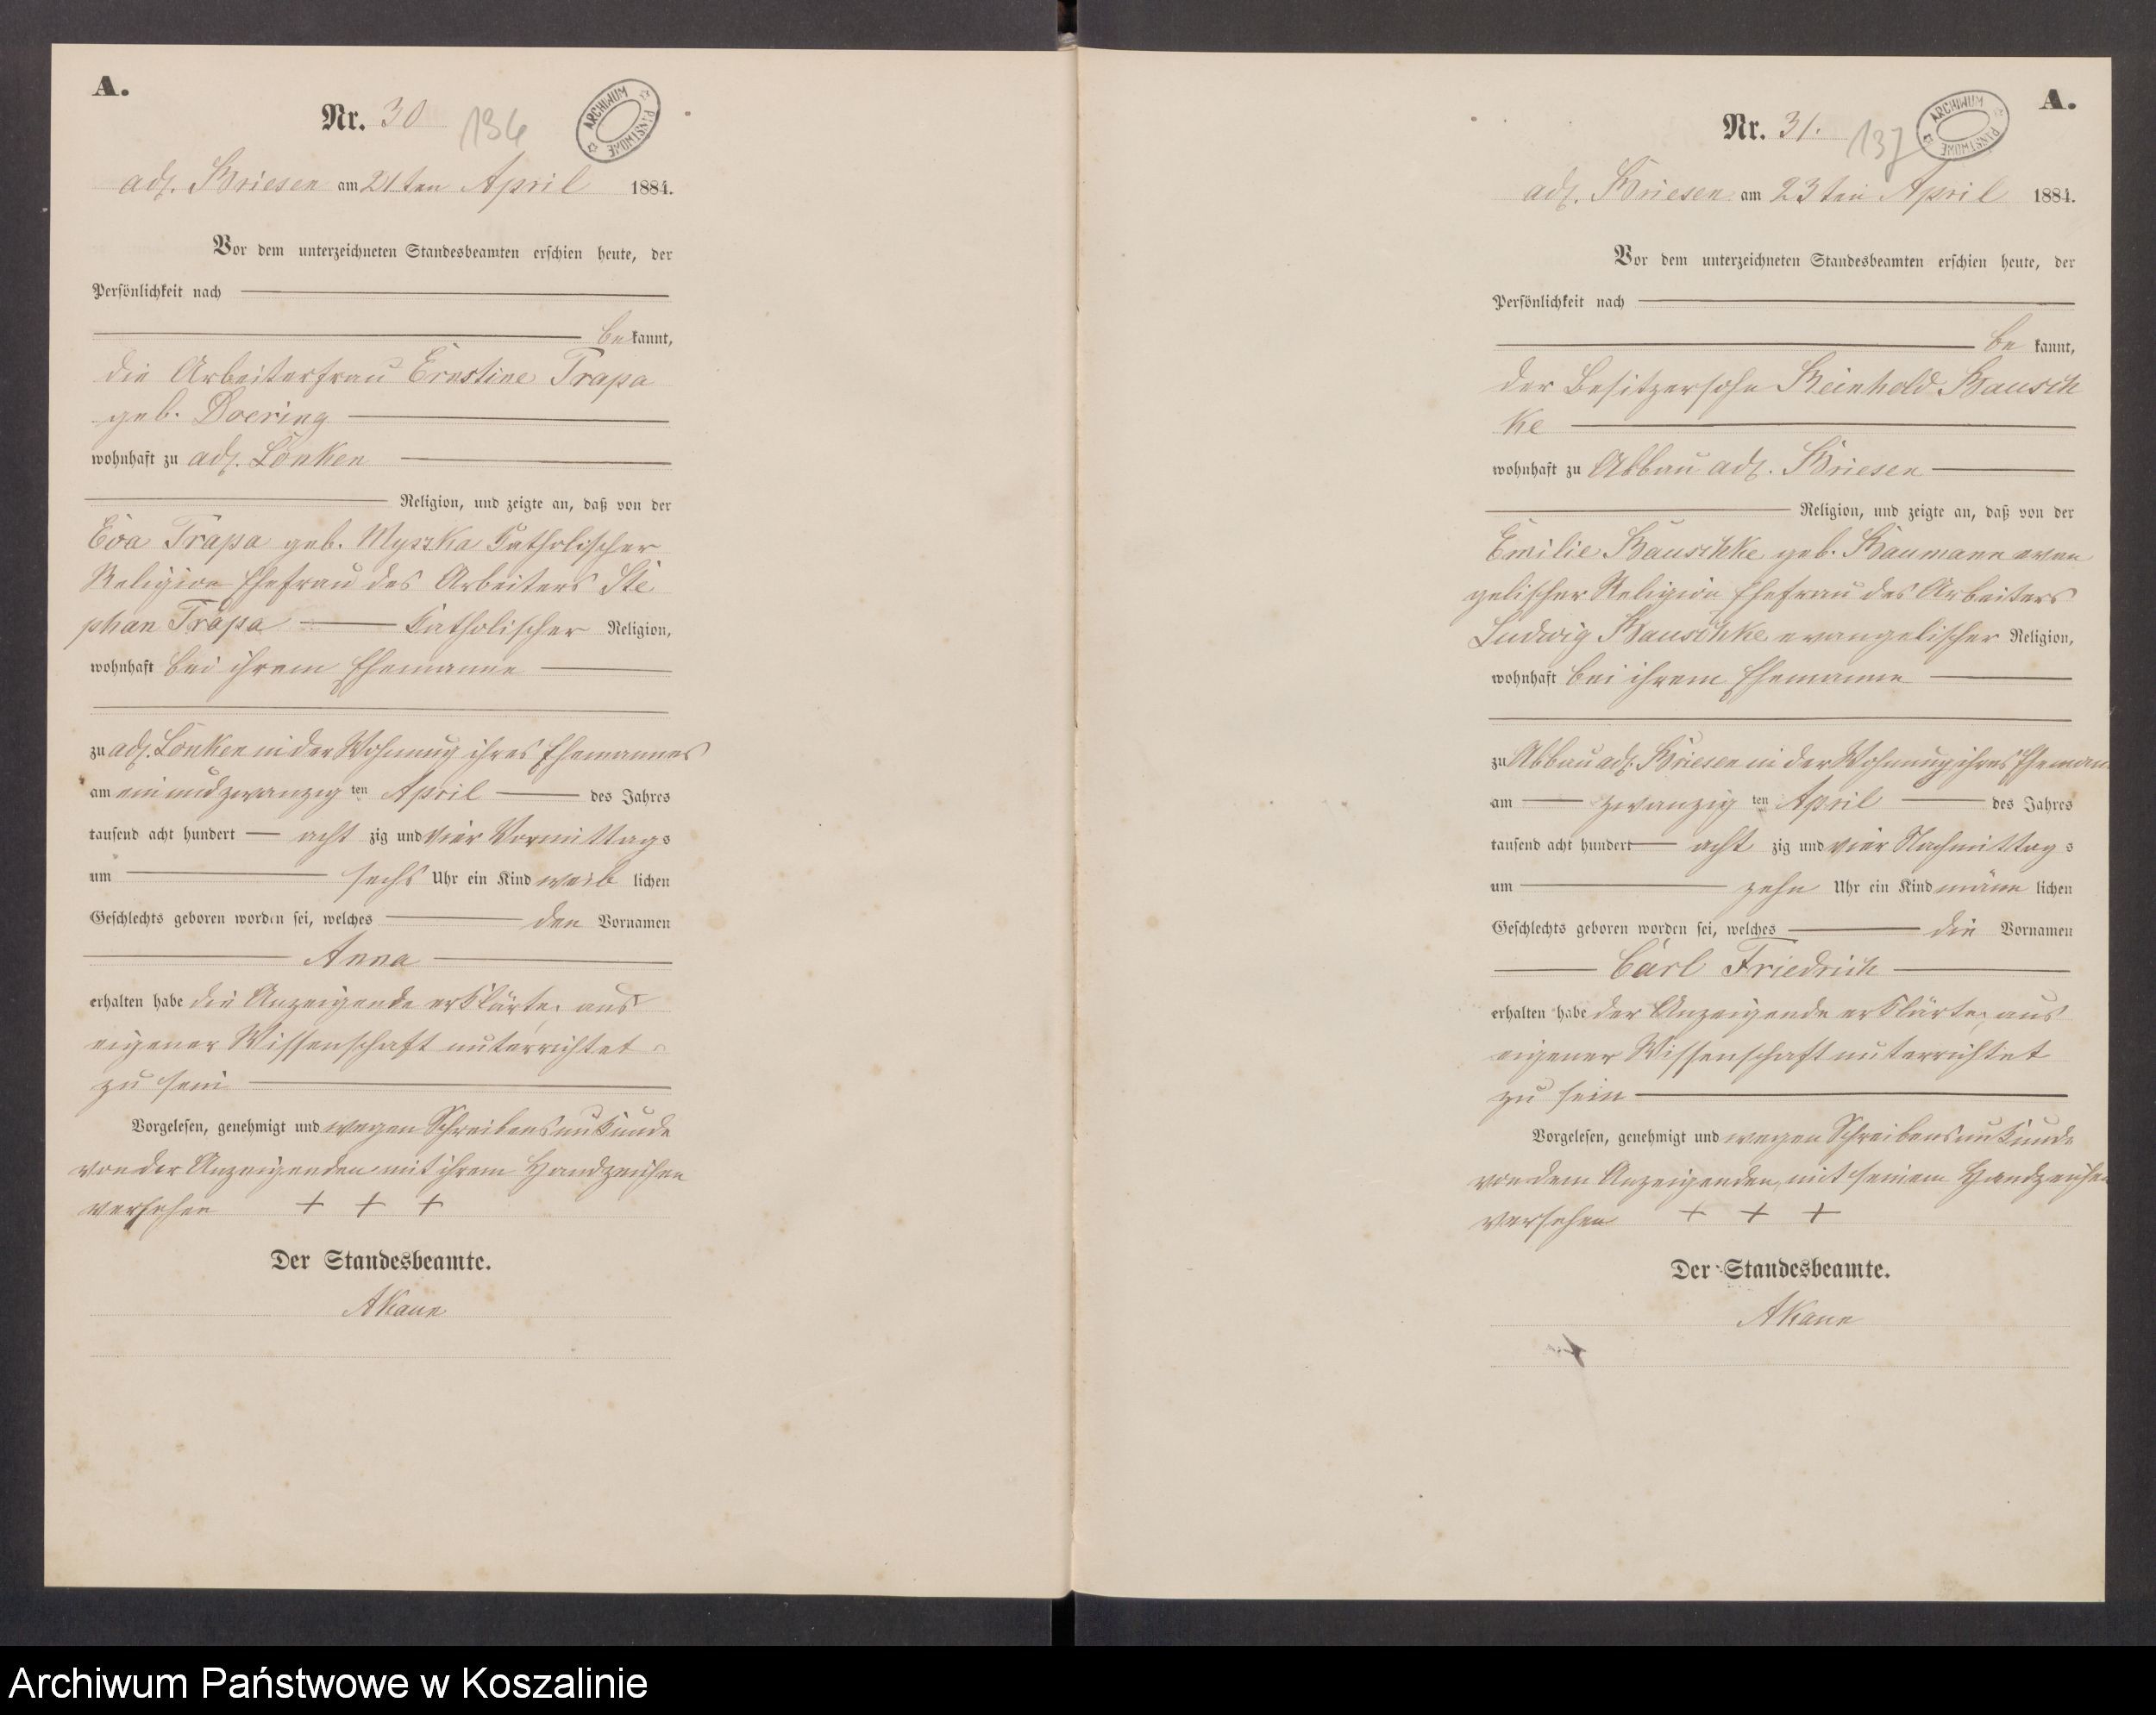 A.
Nr. 30
136
ARCHIWUM PAŃSTWOWE
adl. Briesen am 21ten April 1884.
Vor dem unterzeichneten Standesbeamten erschien heute, der
Persönlichkeit nach
be kannt,
die Arbeiterfrau Ernstine Trapa
geb. Doering
wohnhaft zu adl. Lonken
Religion, und zeigte an, daß von der
Eva Trapa geb. Myszka katholischer
Religion Ehefrau des Arbeiters Ste
phan Trapa katholischer Religion,
wohnhaft bei ihrem Ehemanne
zu adl. Lonken in der Wohnung ihres Ehemannes
am ein und zwanzig ten April des Jahres
tausend acht hundert acht zig und vier Vormittags
um sechs Uhr ein Kind weib lichen
Geschlechts geboren worden sei, welches den Vornamen
Anna
erhalten habe die Anzeigende erklärte, aus
eigener Wissenschaft unterrichtet
zu sein
Vorgelesen, genehmigt und wegen Schreibensunkunde
von der Anzeigenden mit ihrem Handzeichen
versehen + + +
Der Standesbeamte.
AKaun
A.
Nr. 31.
137
ARCHIWUM PAŃSTWOWE
adl. Briesen am 23ten April 1884.
Vor dem unterzeichneten Standesbeamten erschien heute, der
Persönlichkeit nach
be kannt,
der Besitzersohn Reinhold Bausch
ke
wohnhaft zu Abbau adl. Briesen
Religion, und zeigte an, daß von der
Emilie Bauschke geb. Baumann evan
gelischer Religion Ehefrau des Arbeiters
Ludwig Bauschke evangelischer Religion,
wohnhaft bei ihrem Ehemanne
zu Abbau adl. Briesen in der Wohnung ihres Eheman
am zwanzig ten April des Jahres
tausend acht hundert acht zig und vier Nachmittag s
um zehn Uhr ein Kind männ lichen
Geschlechts geboren worden sei, welches die Vornamen
Carl Friedrich
erhalten habe der Anzeigende erklärte, aus
eigener Wissenschaft unterrichtet
zu sein
Vorgelesen, genehmigt und wegen Schreibensunkunde
von dem Anzeigenden, mit seinem Handzeichen
versehen + + +
Der Standesbeamte.
AKaun
Archiwum Państwowe w Koszalinie